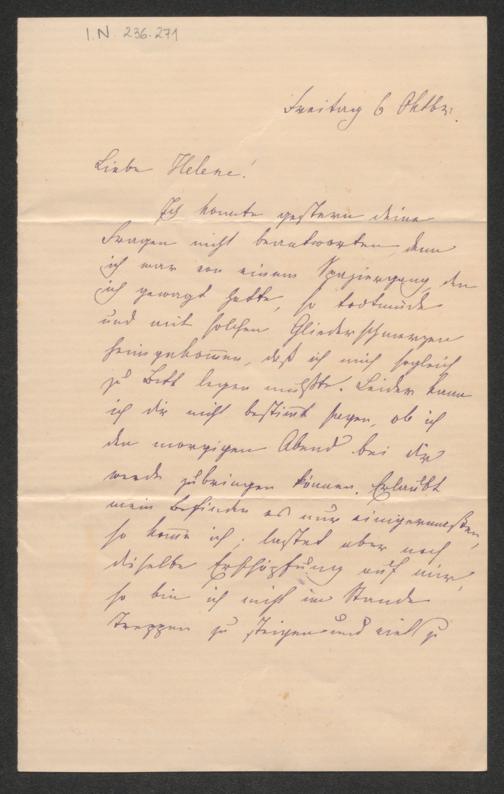 I.N. 236.271
Freitag 6 Oktbr.
Liebe Helene!
Ich konnte gestern deine
Fragen nicht beantworten, denn
ich war von einem Spaziergang, den
ich gewagt hatte, so todtmüde
und mit solchen Gliederschmerzen
heimgekommen, daß ich mich sogleich
zu Bett legen mußte. Leider kann
ich dir nicht bestimmt sagen, ob ich
den morgigen Abend bei dir
werde zubringen können. Erlaubt
mein Befinden es nur einigermaßen,
so komme ich; lastet aber noch
dieselbe Erschöpfung auf mir,
so bin ich nicht im Stande
Treppen zu steigen und viel zu